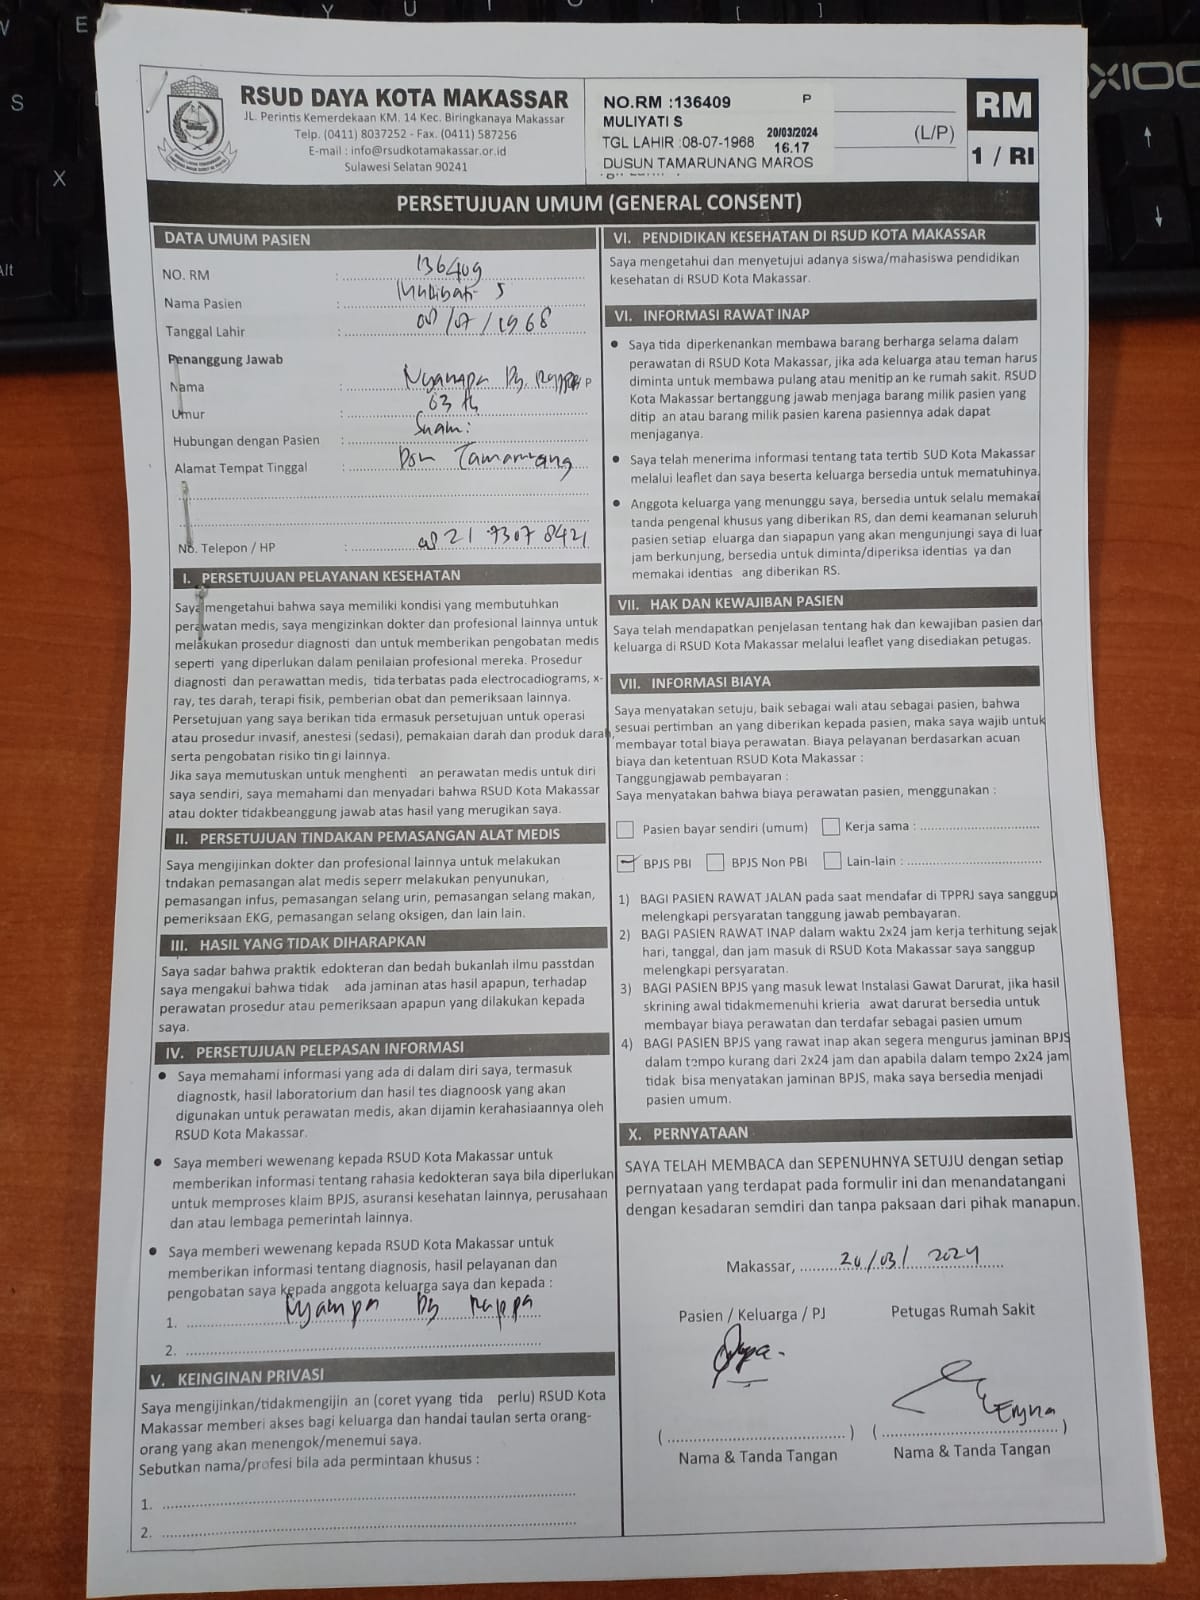 RSUD DAYA KOTA MAKASSAR
JL. Perintis Kemerdekaan KM. 14 Kec. Biringkanaya Makassar
Telp. (0411) 8037252 - Fax. (0411) 587256
E-mail : info@rsudkotamakassar.or.id
Sulawesi Selatan 90241
NO.RM :136409 P
MULIYATI S
TGL LAHIR :08-07-1968 20/03/2024 16.17
DUSUN TAMARUNANG MAROS
(L/P)
RM
1 / RI
PERSETUJUAN UMUM (GENERAL CONSENT)
DATA UMUM PASIEN
NO. RM : 136409
Nama Pasien : S
Tanggal Lahir : 08/07/1968
Penanggung Jawab
Nama : Dg. Rappa P
Umur : 63 th
Hubungan dengan Pasien : Suami
Alamat Tempat Tinggal : Dsn Tamarunang
No. Telepon / HP : 0821 9307 8421
I. PERSETUJUAN PELAYANAN KESEHATAN
Saya mengetahui bahwa saya memiliki kondisi yang membutuhkan
perawatan medis, saya mengizinkan dokter dan profesional lainnya untuk
melakukan prosedur diagnosti dan untuk memberikan pengobatan medis
seperti yang diperlukan dalam penilaian profesional mereka. Prosedur
diagnosti dan perawattan medis, tida terbatas pada electrocadiograms, x-
ray, tes darah, terapi fisik, pemberian obat dan pemeriksaan lainnya.
Persetujuan yang saya berikan tida ermasuk persetujuan untuk operasi
atau prosedur invasif, anestesi (sedasi), pemakaian darah dan produk darah,
serta pengobatan risiko tin gi lainnya.
Jika saya memutuskan untuk menghenti an perawatan medis untuk diri
saya sendiri, saya memahami dan menyadari bahwa RSUD Kota Makassar
atau dokter tidakbeanggung jawab atas hasil yang merugikan saya.
II. PERSETUJUAN TINDAKAN PEMASANGAN ALAT MEDIS
Saya mengijinkan dokter dan profesional lainnya untuk melakukan
tndakan pemasangan alat medis seperr melakukan penyunukan,
pemasangan infus, pemasangan selang urin, pemasangan selang makan,
pemeriksaan EKG, pemasangan selang oksigen, dan lain lain.
III. HASIL YANG TIDAK DIHARAPKAN
Saya sadar bahwa praktik edokteran dan bedah bukanlah ilmu passtdan
saya mengakui bahwa tidak ada jaminan atas hasil apapun, terhadap
perawatan prosedur atau pemeriksaan apapun yang dilakukan kepada
saya.
IV. PERSETUJUAN PELEPASAN INFORMASI
● Saya memahami informasi yang ada di dalam diri saya, termasuk
diagnostk, hasil laboratorium dan hasil tes diagnoosk yang akan
digunakan untuk perawatan medis, akan dijamin kerahasiaannya oleh
RSUD Kota Makassar.
● Saya memberi wewenang kepada RSUD Kota Makassar untuk
memberikan informasi tentang rahasia kedokteran saya bila diperlukan
untuk memproses klaim BPJS, asuransi kesehatan lainnya, perusahaan
dan atau lembaga pemerintah lainnya.
● Saya memberi wewenang kepada RSUD Kota Makassar untuk
memberikan informasi tentang diagnosis, hasil pelayanan dan
pengobatan saya kepada anggota keluarga saya dan kepada :
1. Nyampa Dg Rappa
2.
V. KEINGINAN PRIVASI
Saya mengijinkan/tidakmengijin an (coret yyang tida perlu) RSUD Kota
Makassar memberi akses bagi keluarga dan handai taulan serta orang-
orang yang akan menengok/menemui saya.
Sebutkan nama/profesi bila ada permintaan khusus :
1.
2.
VI. PENDIDIKAN KESEHATAN DI RSUD KOTA MAKASSAR
Saya mengetahui dan menyetujui adanya siswa/mahasiswa pendidikan
kesehatan di RSUD Kota Makassar.
VI. INFORMASI RAWAT INAP
● Saya tida diperkenankan membawa barang berharga selama dalam
perawatan di RSUD Kota Makassar, jika ada keluarga atau teman harus
diminta untuk membawa pulang atau menitip an ke rumah sakit. RSUD
Kota Makassar bertanggung jawab menjaga barang milik pasien yang
ditip an atau barang milik pasien karena pasiennya adak dapat
menjaganya.
● Saya telah menerima informasi tentang tata tertib SUD Kota Makassar
melalui leaflet dan saya beserta keluarga bersedia untuk mematuhinya.
● Anggota keluarga yang menunggu saya, bersedia untuk selalu memakai
tanda pengenal khusus yang diberikan RS, dan demi keamanan seluruh
pasien setiap eluarga dan siapapun yang akan mengunjungi saya di luar
jam berkunjung, bersedia untuk diminta/diperiksa identias ya dan
memakai identias ang diberikan RS.
VII. HAK DAN KEWAJIBAN PASIEN
Saya telah mendapatkan penjelasan tentang hak dan kewajiban pasien dan
keluarga di RSUD Kota Makassar melalui leaflet yang disediakan petugas.
VII. INFORMASI BIAYA
Saya menyatakan setuju, baik sebagai wali atau sebagai pasien, bahwa
sesuai pertimban an yang diberikan kepada pasien, maka saya wajib untuk
membayar total biaya perawatan. Biaya pelayanan berdasarkan acuan
biaya dan ketentuan RSUD Kota Makassar :
Tanggungjawab pembayaran :
Saya menyatakan bahwa biaya perawatan pasien, menggunakan :
Pasien bayar sendiri (umum) Kerja sama :
BPJS PBI BPJS Non PBI Lain-lain :
1) BAGI PASIEN RAWAT JALAN pada saat mendafar di TPPRJ saya sanggup
melengkapi persyaratan tanggung jawab pembayaran.
2) BAGI PASIEN RAWAT INAP dalam waktu 2x24 jam kerja terhitung sejak
hari, tanggal, dan jam masuk di RSUD Kota Makassar saya sanggup
melengkapi persyaratan.
3) BAGI PASIEN BPJS yang masuk lewat Instalasi Gawat Darurat, jika hasil
skrining awal tidakmemenuhi krieria awat darurat bersedia untuk
membayar biaya perawatan dan terdafar sebagai pasien umum
4) BAGI PASIEN BPJS yang rawat inap akan segera mengurus jaminan BPJS
dalam tempo kurang dari 2x24 jam dan apabila dalam tempo 2x24 jam
tidak bisa menyatakan jaminan BPJS, maka saya bersedia menjadi
pasien umum.
X. PERNYATAAN
SAYA TELAH MEMBACA dan SEPENUHNYA SETUJU dengan setiap
pernyataan yang terdapat pada formulir ini dan menandatangani
dengan kesadaran semdiri dan tanpa paksaan dari pihak manapun.
Makassar, 20/03/2024
Pasien / Keluarga / PJ Petugas Rumah Sakit
Eryna
( ) ( )
Nama & Tanda Tangan Nama & Tanda Tangan